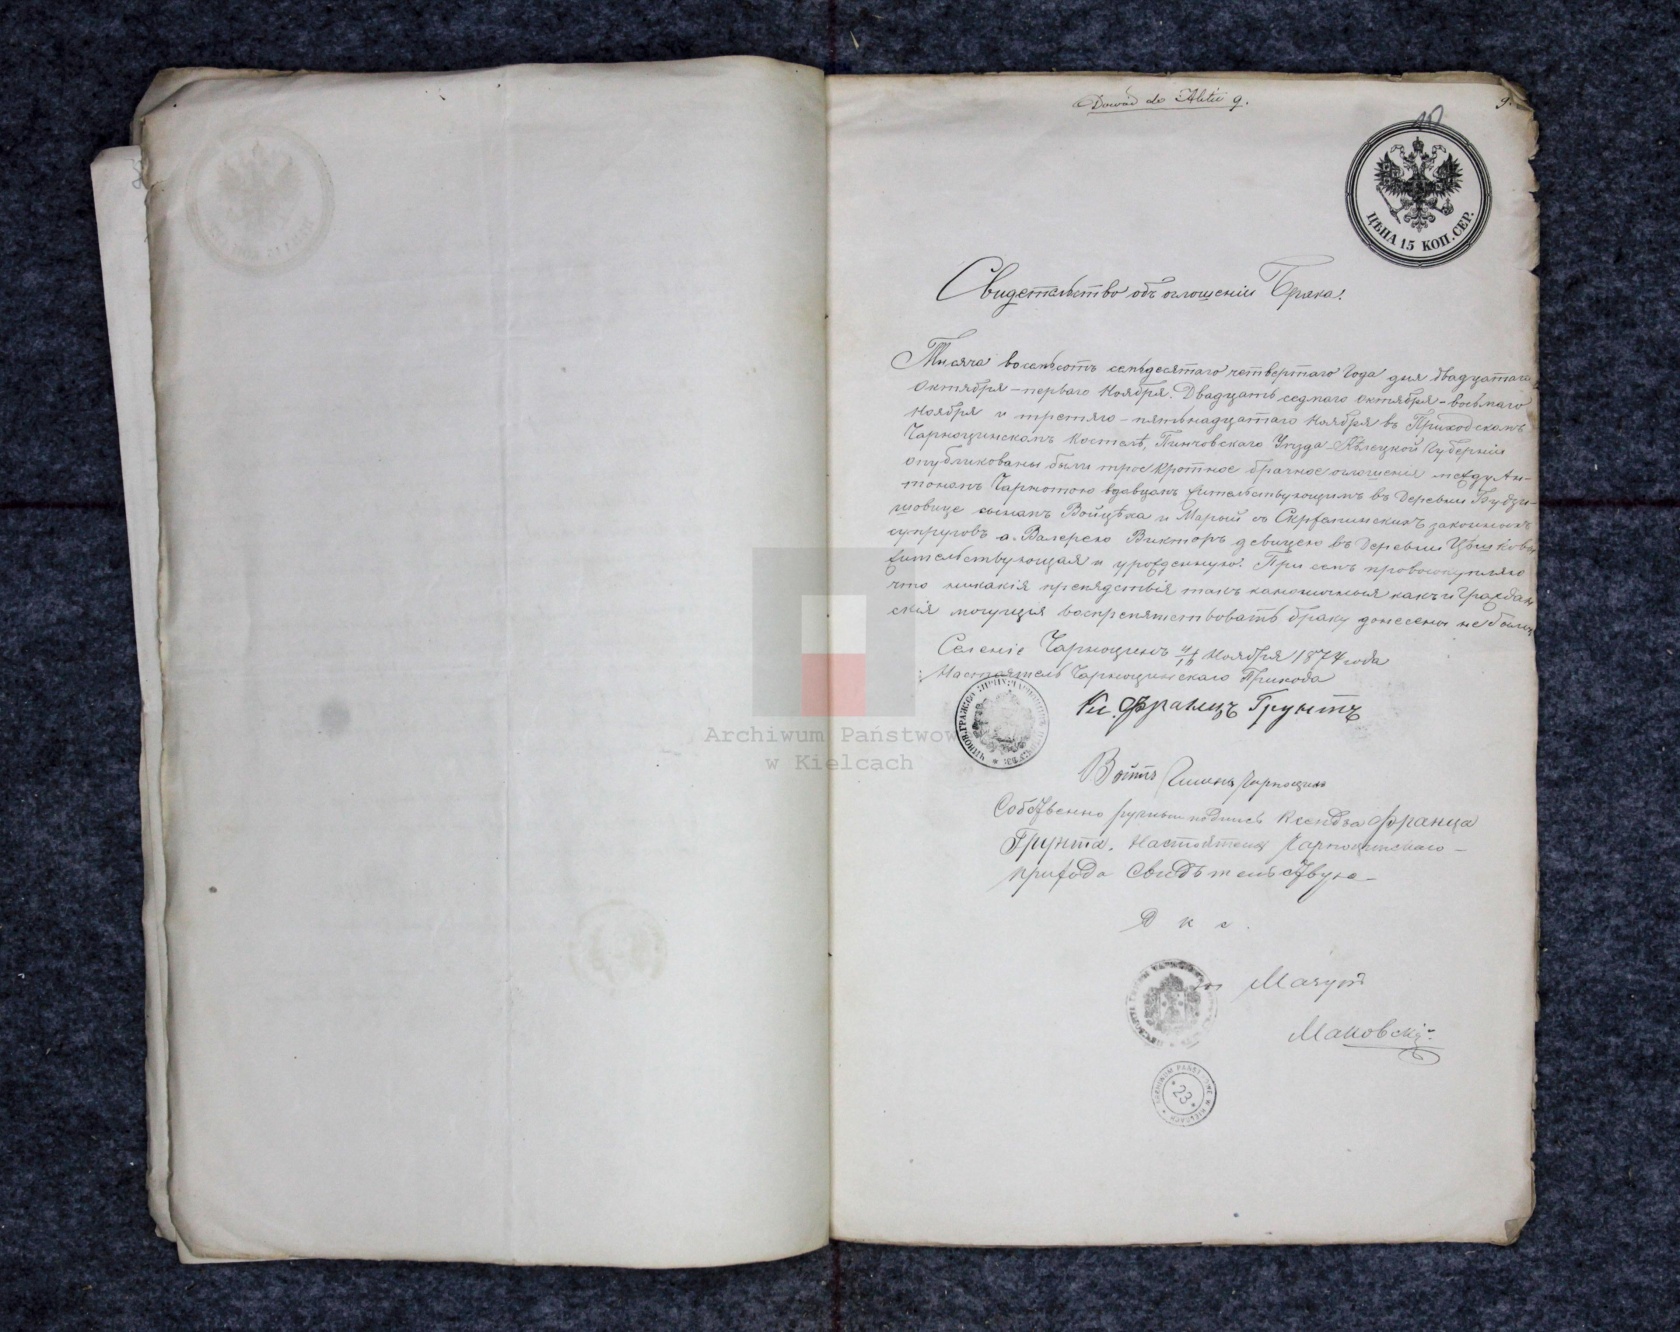 Dowód do Aktu 9.
9.
10
ЦѢНА 15 КОП. СЕР.
Свидетельство объ оглошеніи Брака!
Тисяча восемьсотъ семьдесятаго четвертаго Года дня двадцатаго
Октября – перваго Ноября. Двадцать седмаго Октября – восьмаго
Ноября и третяго – пятьнадцатаго Ноября въ Приходскомъ
Чарноцинскомъ Костелѣ, Пинчовскаго Уезда Кѣлецкой Губерніи
опубликованы были троекротное брачное оглошеніе между Ан-
тономъ Чарнотою вдовцомъ жительствующимъ въ Деревни Будзи-
шовице сыномъ Войцѣха и Марый съ законныхъ
супруговъ а Валерею Викторъ девицею въ Деревни
жительствующая и урожденную. При семъ
что никакія препядствія такъ каноничныя какъ и Граждан
скія могущія воспрепятствовать браку донесены не были
Селеніе Чарноцинъ 4/16 Ноября 1874 года
Настоятель Чарноцинскаго Прихода
Кс. Францъ Грунтъ
Войтъ Гмины Чарноцинъ
Собственно ручный подпись Ксендза Франца
Грунта, Настоятеля Чарноцинскаго –
прихода свидѣтельствую –
Мачут
Маковскій
ARCHIWUM PAŃSTWOWE W KIELCACH
23
Archiwum Państwow
w Kielcach